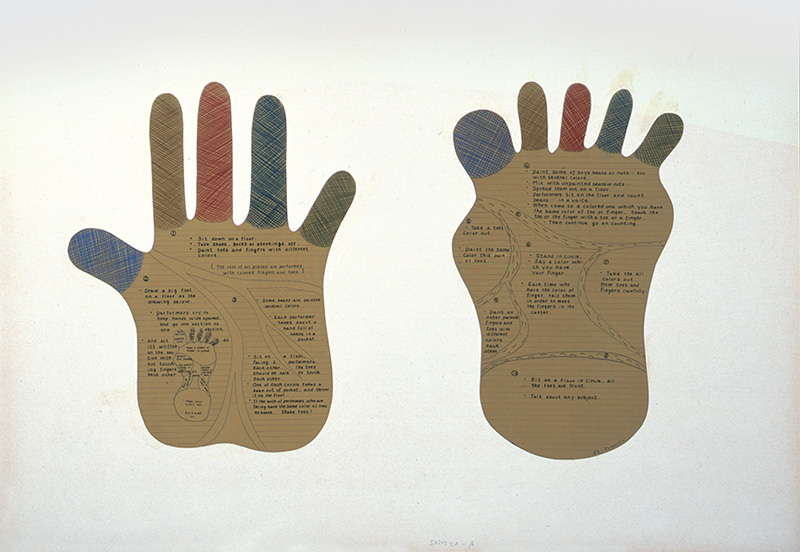 ①
• Sit down on a floor.
• Take shoes, socks or stockings off.
• Paint toes and fingers with different
colors.
( The rets of all pieces are performed
with colored fingers and toes. )
②
• Draw a big feet
on a floor as the
drawing below.
• Performers try to
keep hands wide opened,
and go one section to
one section,
• and act as
it's written
on the sec
tion with
out touch
ing fingers
each other
③
• Some beans are painted
several colors.
• Each performer
takes about a
hand full of
beans in a
pocket.
• Sit on a floor,
facing 2 performers
each other. The toes
should be able to touch
each other.
• One of each couple takes a
bean out of pocket, and throw
it on the floor.
• If the both of performers who are
facing have the same color of toes
as beans. Shake toes!
④
• Paint some of soya beans or nuts
with several colors.
• Mix with unpainted beans or nuts.
• Spread them out on a floor.
• Performers sit on the floor and count
beans in a voice.
• When come to a colored one which you have
the same color of toe or finger, touch the
toe or the finger with a toe or a finger.
• Then continue on counting.
• Take a toes
color out.
• Paint the same
color this part
of foot.
• Stand in circle.
• Say a color who
ch you have
your finger.
• Each time who
have the color of
finger, rais them
in order to meet
the fingers in the
center.
• Take the all
colors out
from toes and
fingers carefully.
• Paint an
other persons
fingers and
toes with
different
colors
each
other.
• Sit on a floor in circle. all
the feet are front.
• Talk about any subject.